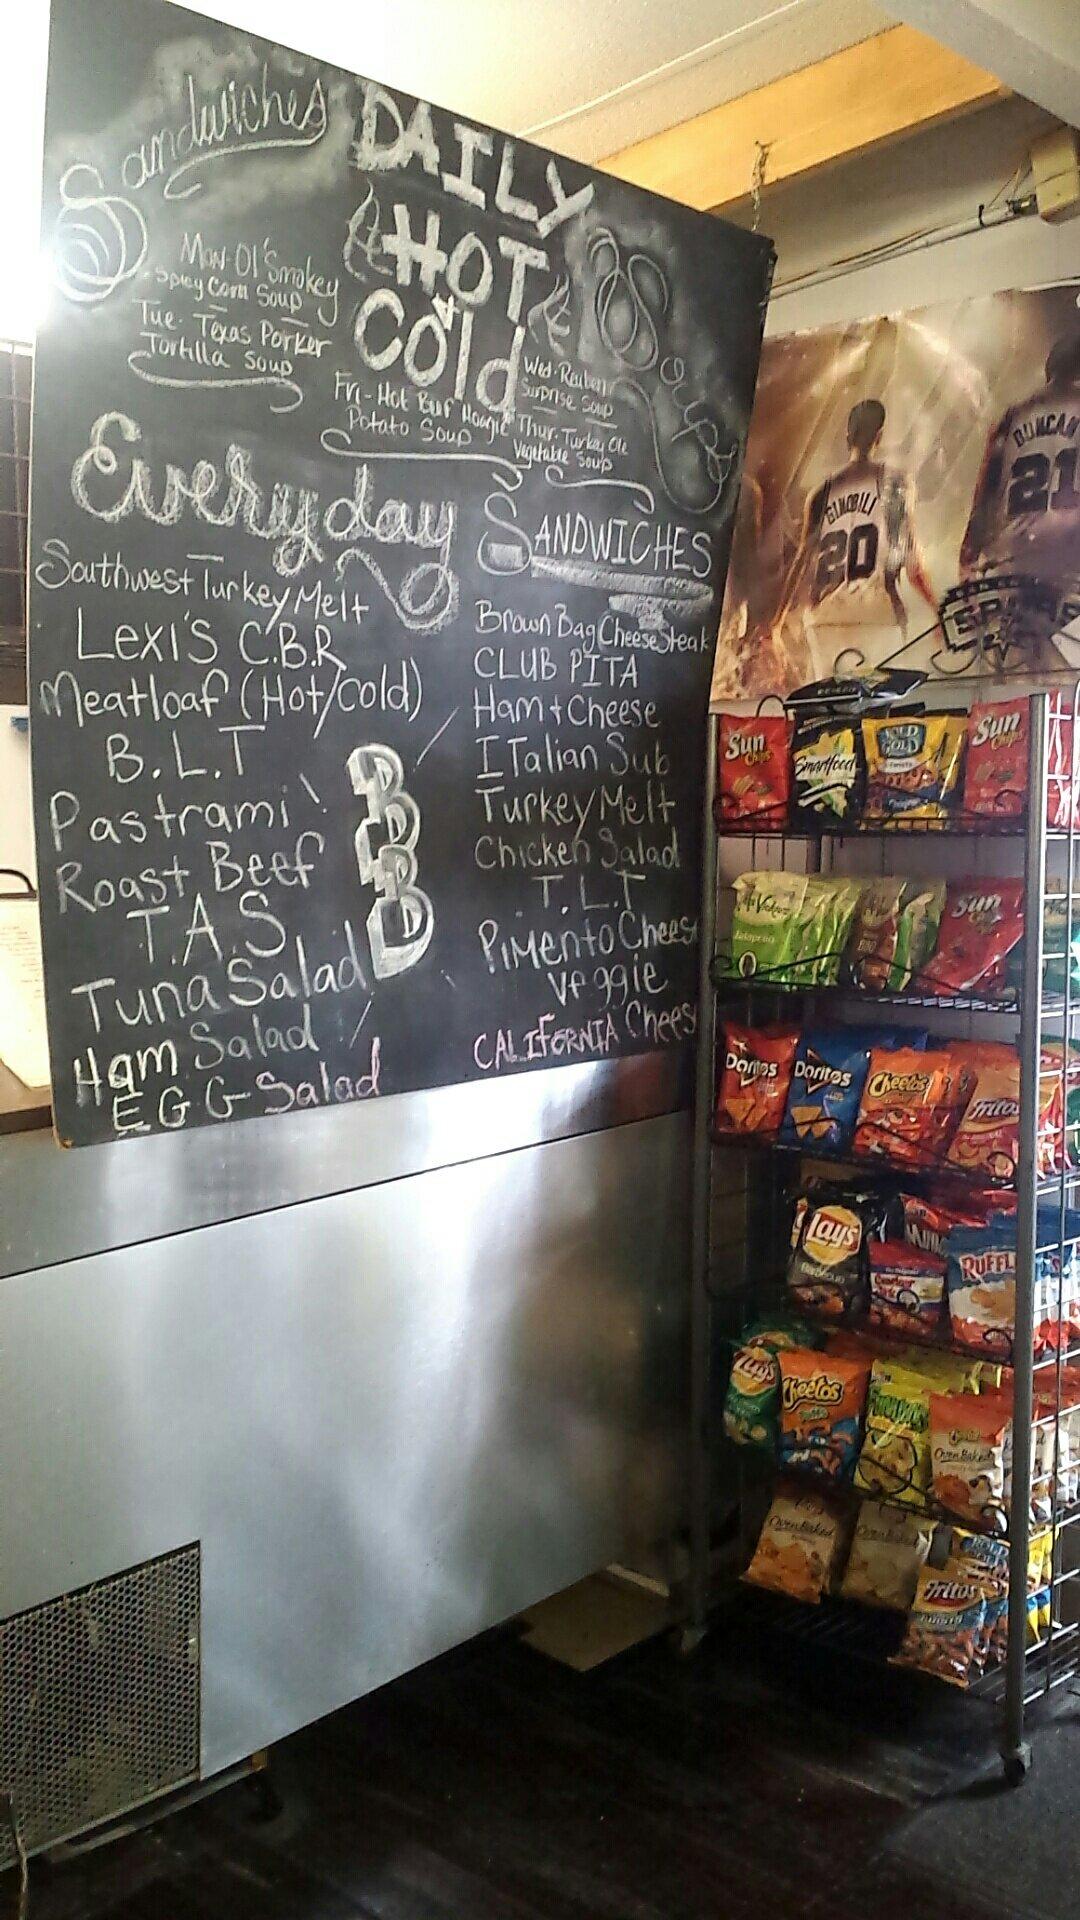 Sandwiches
DAILY
HOT
&
Cold
Soups
Mon-Ol' Smokey
Spicy Corn Soup
Tue. Texas Porker
Tortilla Soup
Wed. Reuben
Surprise Soup
Fri-Hot Beef Hoagie
Potato Soup
Thur. Turkey Ole
Vegetable Soup
Everyday
SANDWICHES
Southwest Turkey Melt
LEXi'S C.B.R
Meatloaf (Hot/cold)
B.L.T
Pastrami
Roast Beef
T.A.S
Tuna Salad
Ham Salad
EGG Salad
BBBD
Brown Bag Cheese Steak
CLUB PITA
Ham + Cheese
ITalian Sub
Turkey Melt
Chicken Salad
T.L.T
PiMENTO Cheese
Veggie
CALIFORNIA Cheese
GINOBILI
20
DUNCAN
21
SPURS
Sun
Chips
Smartfood
ROLD
GOLD
Sun
Chips
Miss Vickie's
Jalapeño
BBQ
Sun
Doritos
Doritos
Cheetos
Fritos
Lay's
Barbecue
RUFFLES
Lay's
Cheetos
Puffs
FUNYUNS
Oven Baked
Oven Baked
Oven Baked
ROLD
GOLD
Fritos